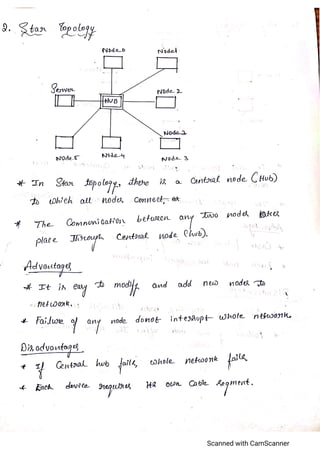 2. Star Topology
Node.0 Node1
Server HUB Node 2
Node 2
Node.5 Node.4 Node 3
* In Star topology, there is a Central node (Hub)
to which all nodes connect.
* The Communication between any two nodes takes
place Through Central node (hub).
Advantages
* It is easy to modify and add new nodes To
network.
* Failure of any node donot interrupt whole network.
Disadvantages
* If Central hub fails, whole network fails
* Each device requires its own Cable Segment.
Scanned with CamScanner